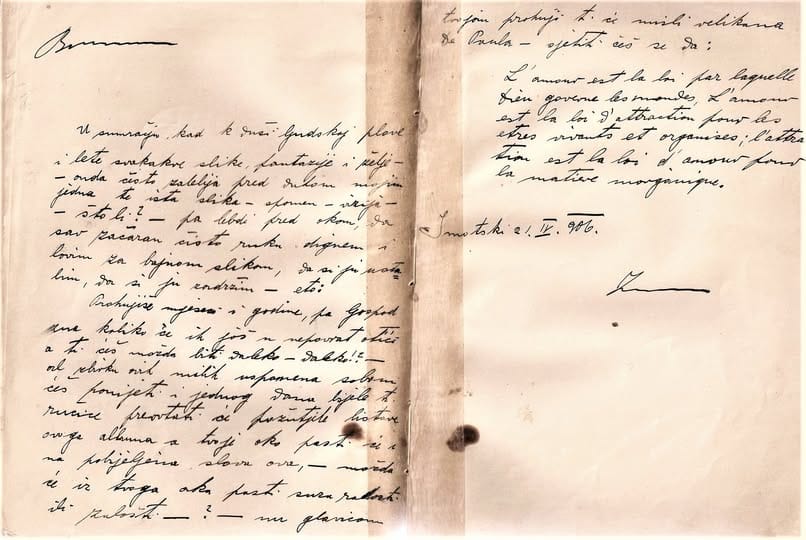 B
U sumračju kad k duši ljudskoj plove
i lete svakakve slike, fantazije i želje –
– onda često zalebdija pred duhom mojim
jedna te ista slika – spomen –
– što li? – pa lebdi pred okom, da
sav začaran često ruku dignem i
lovim za bajnom slikom, da si ju usta=
bim, da si ju zadržim – eto:
Prohujiše mjeseci i godine, pa Gospod
zna koliko će ih još u nepovrat otići
a ti ćeš možda biti daleko – daleko!? –
od zbirke ovih milih uspomena sobom
ćeš ponijeti i jednog dana bijele ti
rucice preovtati će požutjele listove
svoga albuma a tvoje oko pasti će i
na pobijeljena slova ova, – možda
će iz tvoga oka pasti suza radosti
ili žalosti – ? – nu glavicom
tvojom prohuji ti će misli velikana
De Paula – sjetiti ćeš se da:
L'amour est la loi par laquelle
Dieu governe les mondes, L'amour
est la loi d'attraction pour les
etres vivants et organises; l'attra
tion est la loi d'amour pour
la matiere inorganique.
Imotski 21. IV. 906.